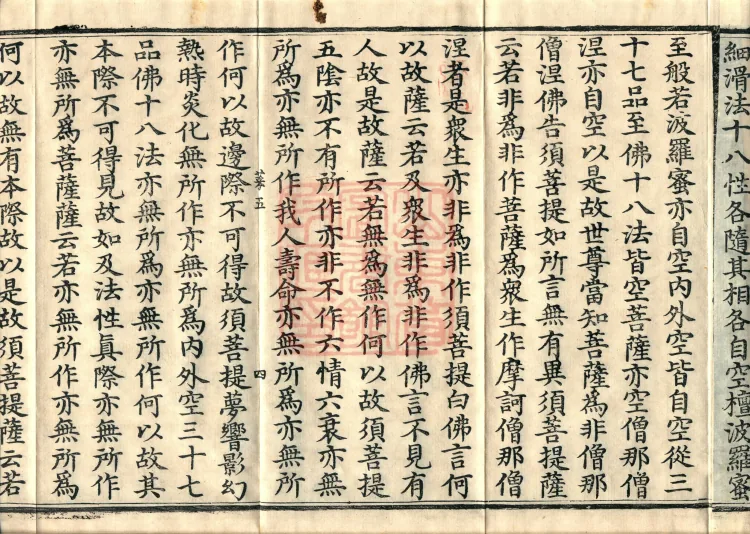 細滑法十八性各隨其相各自空檀波羅蜜
至般若波羅蜜亦自空内外空皆自空從三
十七品至佛十八法皆空菩薩亦空僧那僧
涅亦自空以是故世尊當知菩薩為非僧那
僧涅佛告須菩提如所言無有異須菩提薩
云若非為非作菩薩為衆生作摩訶僧那僧
涅者是衆生亦非為非作須菩提白佛言何
以故薩云若及衆生非為非作佛言不見有
人故是故薩云若無為無作何以故須菩提
五陰亦不有所作亦非不作六情六衰亦無
所為亦無所作我人壽命亦無所為亦無所
菜五
四
作何以故邊際不可得故須菩提夢響影幻
熱時炎化無所作亦無所為内外空三十七
品佛十八法亦無所為亦無所作何以故其
本際不可得見故如及法性眞際亦無所作
亦無所為菩薩薩云若亦無所作亦無所為
何以故無有本際故以是故須菩提薩云若